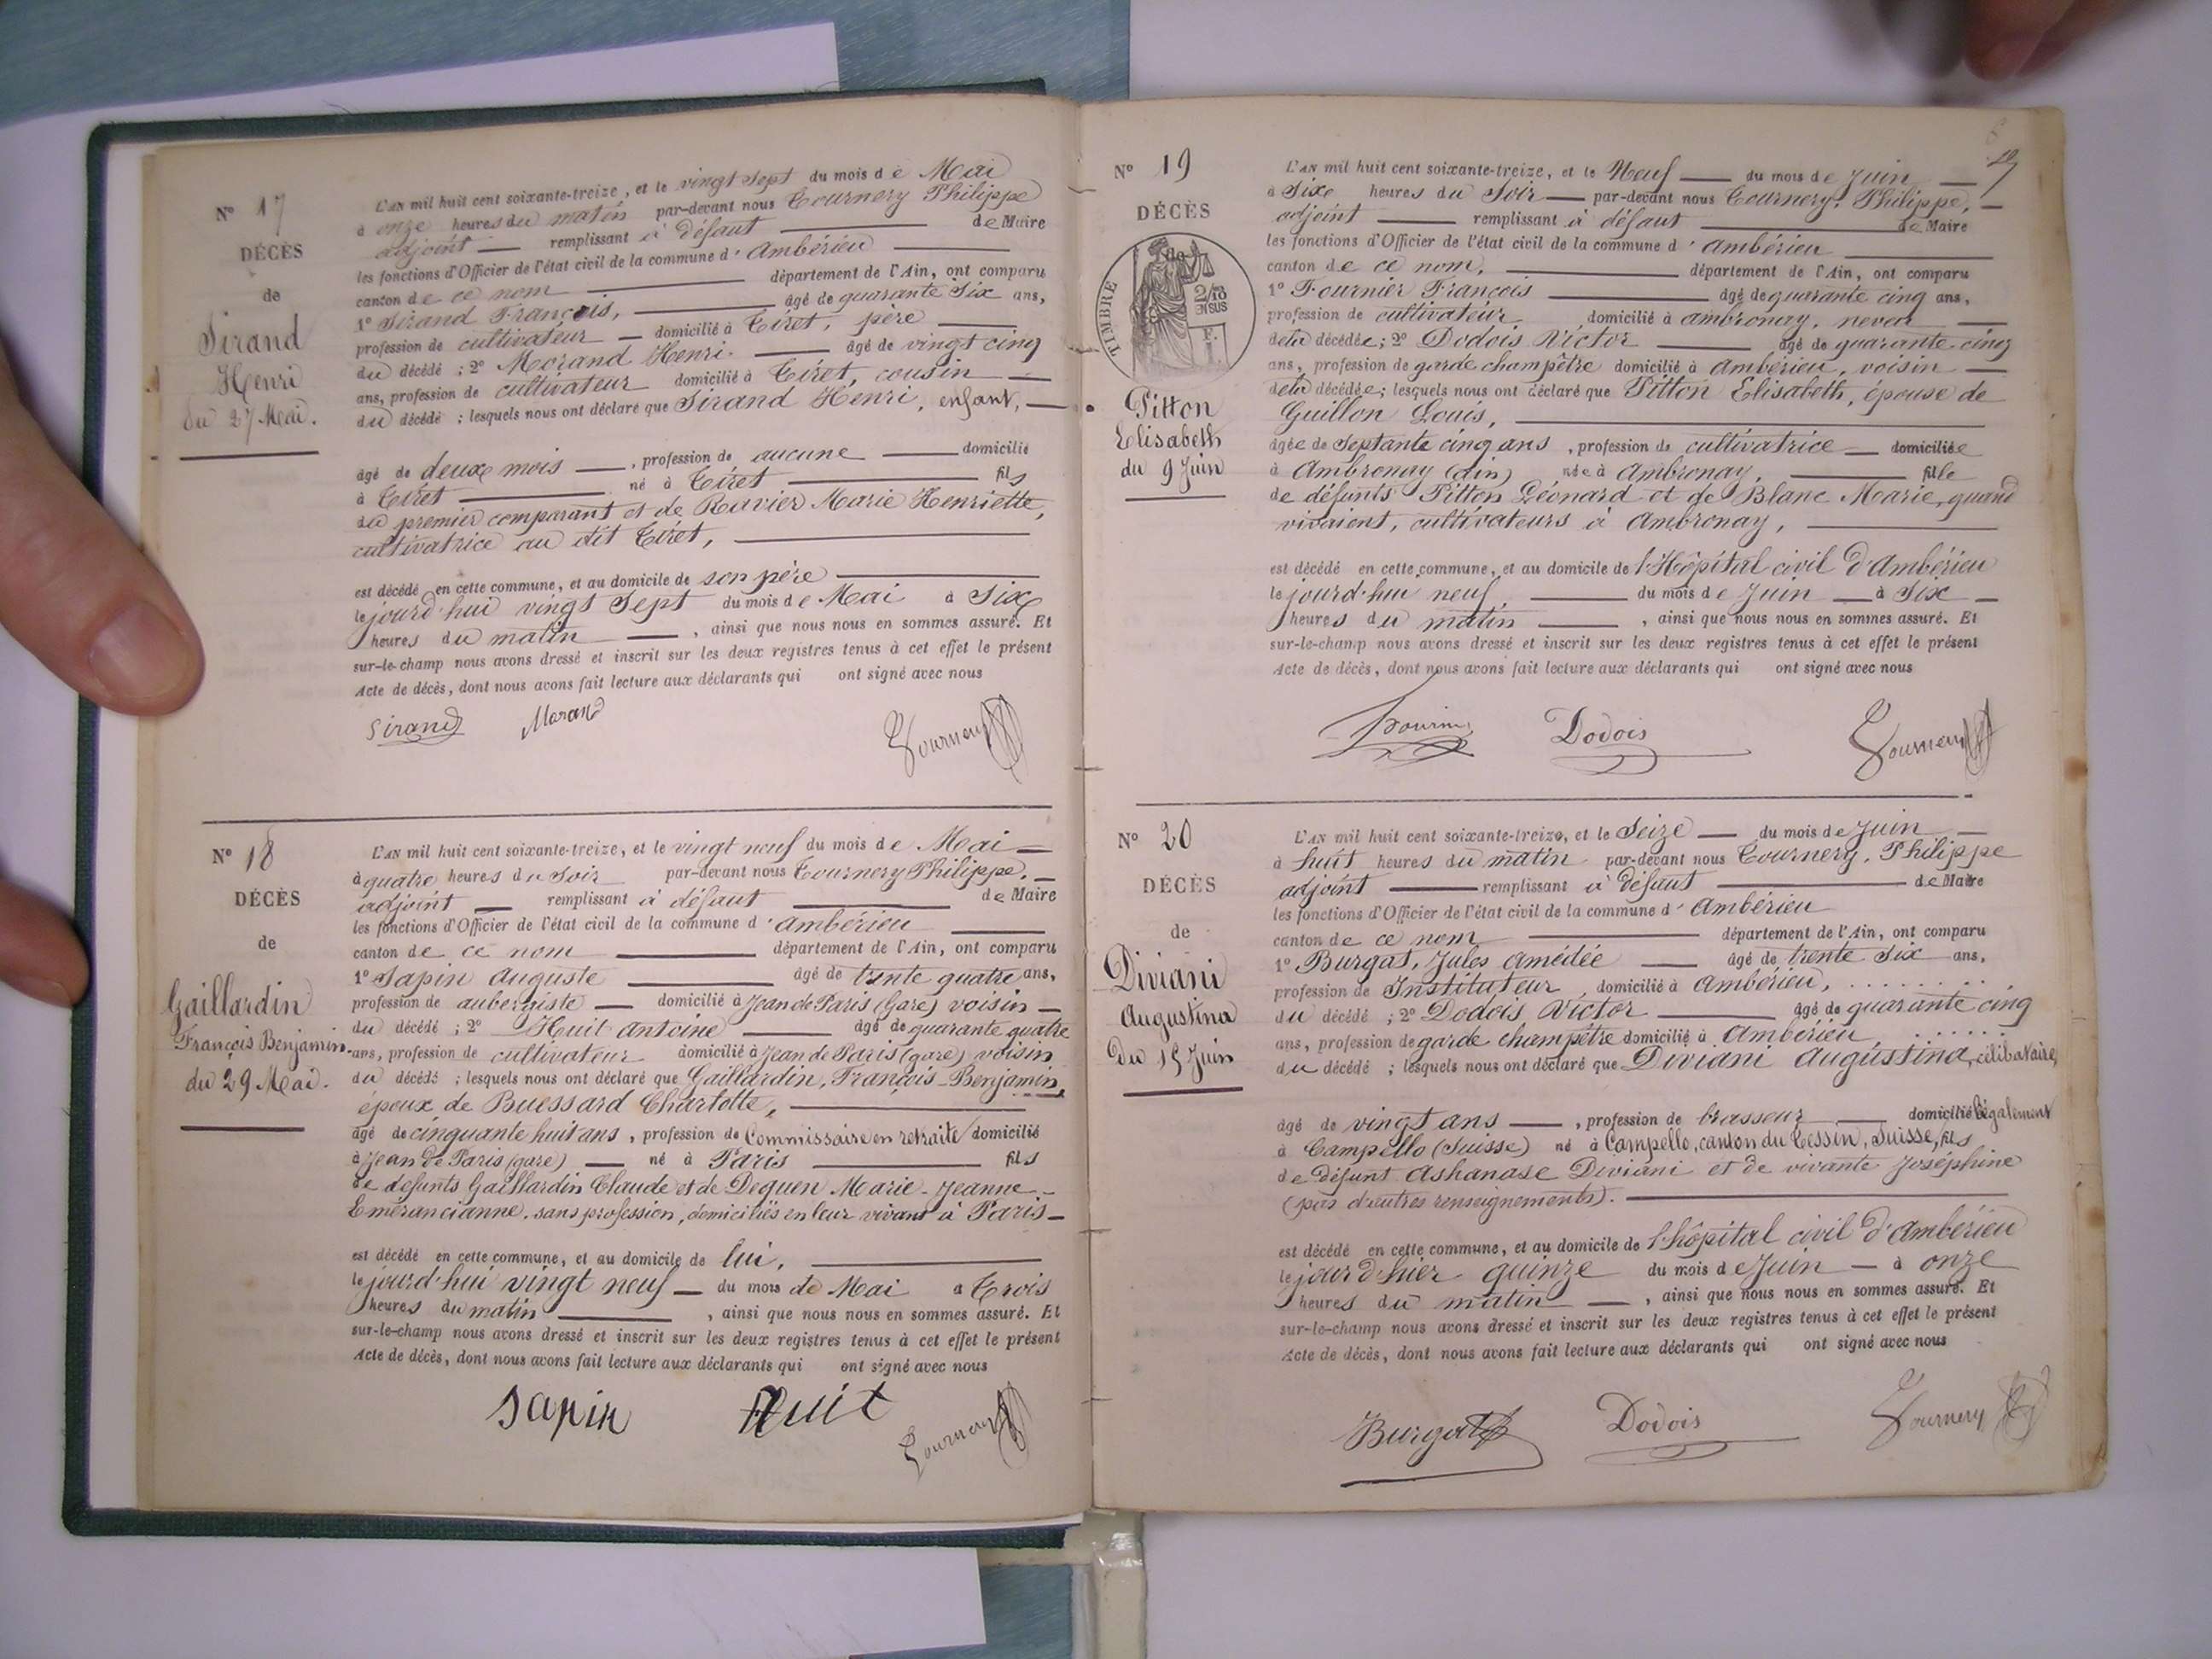 Nº 17
DÉCÈS
de
Sirand
Henri
du 27 Mai.
L'AN mil huit cent soixante-treize, et le vingt sept du mois de Mai
à onze heures du matin par-devant nous Tournery Philippe
adjoint remplissant à défaut de Maire
les fonctions d'Officier de l'état civil de la commune d'Ambérieu
canton de ce nom département de l'Ain, ont comparu
1º Sirand François, âgé de quarante six ans,
profession de cultivateur domicilié à Tiret, père
du décédé ; 2º Morand Henri. âgé de vingt cinq
ans, profession de cultivateur domicilié à Tiret, cousin
du décédé ; lesquels nous ont déclaré que Sirand Henri, enfant,
âgé de deux mois , profession de aucune domicilié
à Tiret né à Tiret fils
du premier comparant et de Ravier Marie Henriette,
cultivatrice au dit Tiret,
est décédé en cette commune, et au domicile de son père
le jourd'hui vingt sept du mois de Mai à six
heures du matin , ainsi que nous nous en sommes assuré. Et
sur-le-champ nous avons dressé et inscrit sur les deux registres tenus à cet effet le présent
Acte de décès, dont nous avons fait lecture aux déclarants qui ont signé avec nous
Sirand Morand Tournery
Nº 18
DÉCÈS
de
Gaillardin
François Benjamin.
du 29 Mai.
L'AN mil huit cent soixante-treize, et le vingt neuf du mois de Mai
à quatre heures du soir par-devant nous Tournery Philippe,
adjoint remplissant à défaut de Maire
les fonctions d'Officier de l'état civil de la commune d'Ambérieu
canton de ce nom département de l'Ain, ont comparu
1º Sapin Auguste âgé de trente quatre ans,
profession de aubergiste domicilié à Jean de Paris (Gare) voisin
du décédé ; 2º Huit Antoine âgé de quarante quatre
ans, profession de cultivateur domicilié à Jean de Paris (gare) voisin
du décédé ; lesquels nous ont déclaré que Gaillardin, François-Benjamin,
époux de Buessard Charlotte,
âgé de cinquante huit ans , profession de Commissaire en retraite domicilié
à Jean de Paris (gare) né à Paris fils
de défunts Gaillardin Claude et de Dequen Marie-Jeanne-
Emérancianne, sans profession, domiciliés en leur vivant à Paris
est décédé en cette commune, et au domicile de lui,
le jourd'hui vingt neuf du mois de Mai à Trois
heures du matin , ainsi que nous nous en sommes assuré. Et
sur-le-champ nous avons dressé et inscrit sur les deux registres tenus à cet effet le présent
Acte de décès, dont nous avons fait lecture aux déclarants qui ont signé avec nous
Sapin Huit Tournery
19
Nº 19
DÉCÈS
de
TIMBRE
Pitton
Elisabeth
du 9 Juin
L'AN mil huit cent soixante-treize, et le Neuf du mois de Juin
à Sixe heures du Soir par-devant nous Tournery, Philippe,
adjoint remplissant à défaut de Maire
les fonctions d'Officier de l'état civil de la commune d'Ambérieu
canton de ce nom, département de l'Ain, ont comparu
1º Fournier François âgé de quarante cinq ans,
profession de cultivateur domicilié à Ambronay, neveu
de la décédée; 2º Dodois Victor âgé de quarante cinq
ans, profession de garde champêtre domicilié à Ambérieu, voisin
de la décédée; lesquels nous ont déclaré que Pitton Elisabeth, épouse de
Guillon Louis,
âgée de Septante cinq ans , profession de cultivatrice domiciliée
à Ambronay (Ain) née à Ambronay, fille
de défunts Pitton Léonard et de Blanc Marie, quand
vivaient, cultivateurs à Ambronay,
est décédé en cette commune, et au domicile de l'Hôpital civil d'Ambérieu
le jourd'hui neuf, du mois de Juin à Six
heures du matin , ainsi que nous nous en sommes assuré. Et
sur-le-champ nous avons dressé et inscrit sur les deux registres tenus à cet effet le présent
Acte de décès, dont nous avons fait lecture aux déclarants qui ont signé avec nous
Dodois Tournery
Nº 20
DÉCÈS
de
Diviani
Augustina
Du 15 Juin
L'AN mil huit cent soixante-treize, et le Seize du mois de Juin
à huit heures du matin par-devant nous Tournery, Philippe
adjoint remplissant à défaut de Maire
les fonctions d'Officier de l'état civil de la commune d'Ambérieu
canton de ce nom département de l'Ain, ont comparu
1º Burgat, Jules Amédée âgé de trente six ans,
profession de Instituteur, domicilié à Ambérieu, ........
du décédé ; 2º Dodois Victor âgé de quarante cinq
ans, profession de garde champêtre domicilié à Ambérieu ......
du décédé ; lesquels nous ont déclaré que Diviani Augustina, célibataire,
âgé de vingt ans , profession de brasseur domicilié légalement
à Campello (Suisse) né à Campello, canton du Tessin, Suisse, fils
de défunt Ashanase Diviani et de vivante Joséphine
(pas d'autres renseignements).
est décédé en cette commune, et au domicile de l'hôpital civil d'Ambérieu
le jour d'hier quinze du mois de Juin à onze
heures du matin , ainsi que nous nous en sommes assuré. Et
sur-le-champ nous avons dressé et inscrit sur les deux registres tenus à cet effet le présent
Acte de décès, dont nous avons fait lecture aux déclarants qui ont signé avec nous
Burgat Dodois Tournery